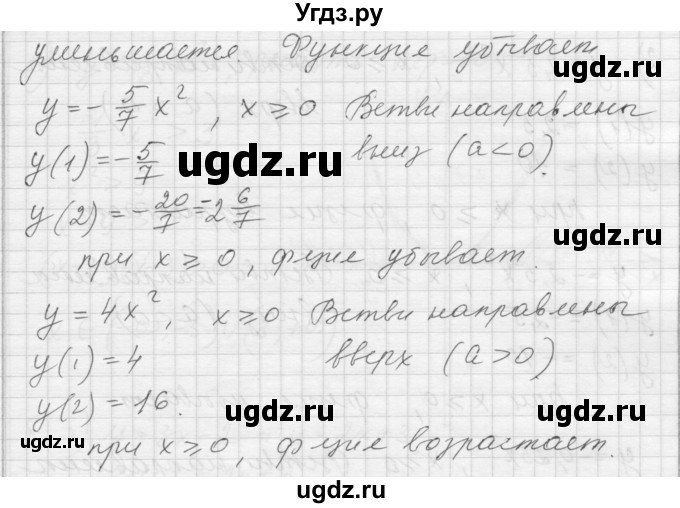 Угдз.ру
уменьшается. Функция убывает
y = -5/7 x², x ≥ 0 Ветви направлены
y(1) = -5/7 вниз (a<0).
y(2) = -20/7 = -2 6/7
при x ≥ 0, ф-ция убывает.
y = 4x², x ≥ 0 Ветви направлены
y(1) = 4 вверх (a>0)
y(2) = 16.
при x ≥ 0, ф-ция возрастает.
ugdz.ru
ugdz.ru
ugdz.ru
ugdz.ru
ugdz.ru
ugdz.ru
ugdz.ru
ugdz.ru
ugdz.ru
ugdz.ru